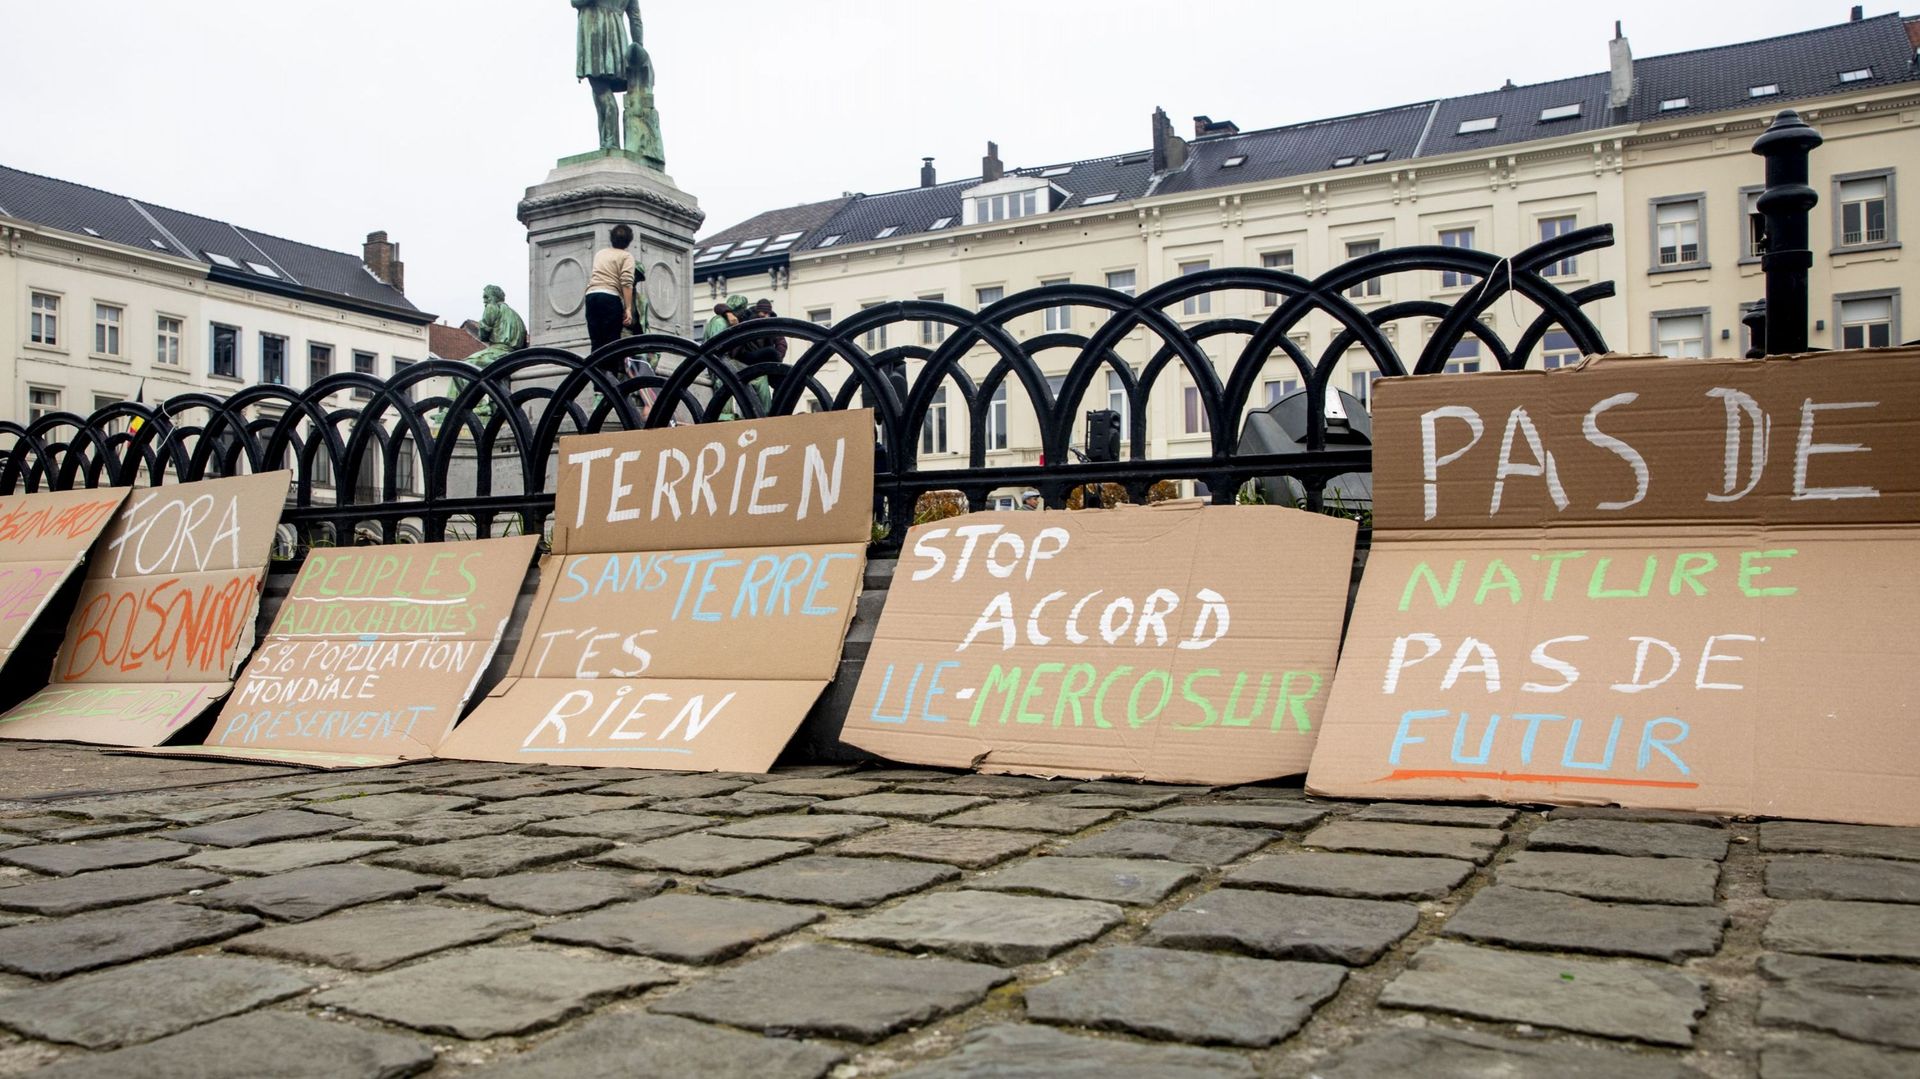 FORA
BOLSONARO
PEUPLES
AUTOCHTONES
5% POPULATION
MONDIALE
PRÉSERVENT
TERRIEN
SANS TERRE
T'ES
RIEN
STOP
ACCORD
UE-MERCOSUR
PAS DE
NATURE
PAS DE
FUTUR